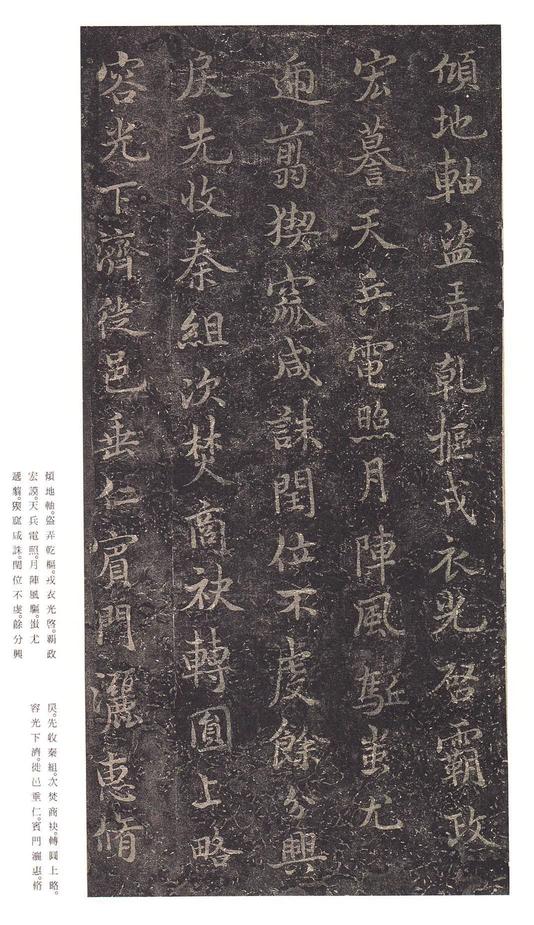 傾地軸盜弄乾樞戎衣光啓霸政
宏謩天兵電照月陣風駈蚩尤
遞翦猰窳咸誅閏位不虔餘分興
戾先收秦組次焚商袂轉圓上略
容光下濟徙邑垂仁賓門灑惠脩
傾地軸。盜弄乾樞。戎衣光啓。霸政
宏謨。天兵電照。月陣風驅。蚩尤
遞翦。猰窳咸誅。閏位不虔。餘分興
戾。先收秦組。次焚商袂。轉圓上略。
容光下濟。徙邑垂仁。賓門灑惠。脩